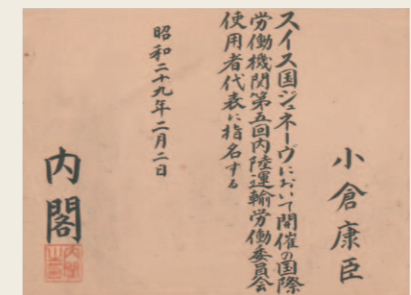 小倉康臣
スイス国ジュネーヴにおいて開催の国際
労働機関第五回内陸運輸労働委員会
使用者代表に指名する
昭和二十九年二月二日
内閣